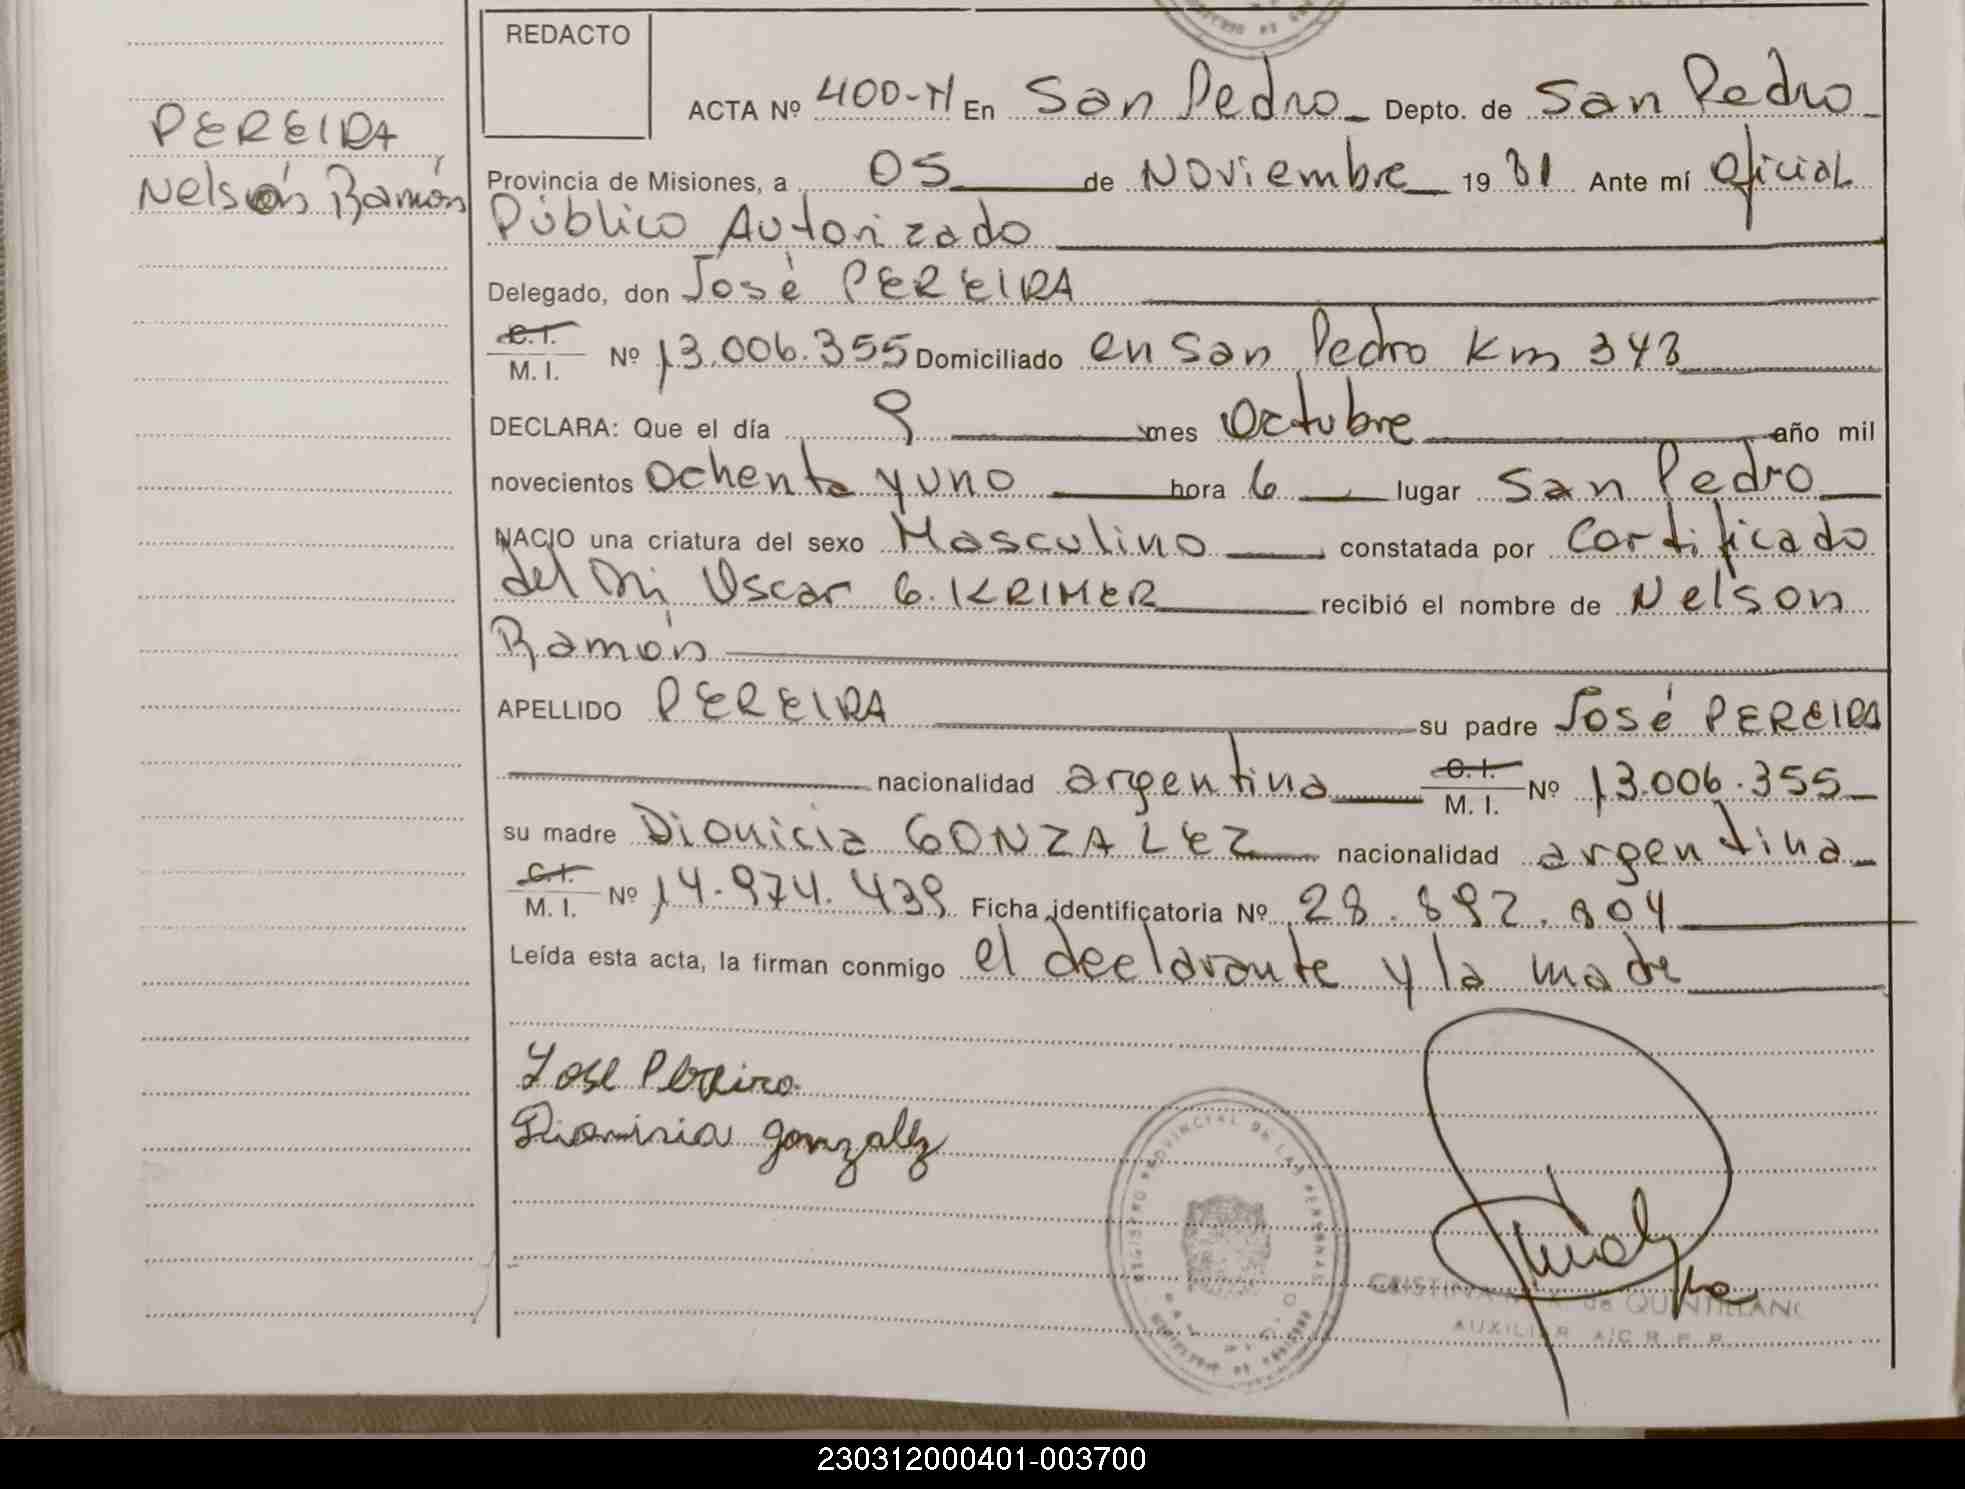 REDACTO
PEREIRA,
Nelsón Ramón
ACTA Nº 400-M En San Pedro Depto. de San Pedro
Provincia de Misiones, a 05 de Noviembre 19 81 Ante mí Oficial
Público Autorizado
Delegado, don José PEREIRA
C.I.
M. I. Nº 13.006.355 Domiciliado en San Pedro Km 343
DECLARA: Que el día 9 mes Octubre año mil
novecientos Ochenta y uno hora 6 lugar San Pedro
NACIO una criatura del sexo Masculino constatada por Certificado
del Oscar G. KRIMER recibió el nombre de Nelson
Ramón
APELLIDO PEREIRA su padre José PEREIRA
nacionalidad argentina C.I. M. I. Nº 13.006.355
su madre Dionicia GONZALEZ nacionalidad argentina
C.I.
M. I. Nº 14.974.439 Ficha identificatoria Nº 28.892.804
Leída esta acta, la firman conmigo el declarante y la madre
Jose Pereira
Dionisia gonzalez
REGISTRO PROVINCIAL DE LAS PERSONAS
CRISTINA de QUINTILLAN
AUXILIAR A/C.R.P.P.
230312000401-003700